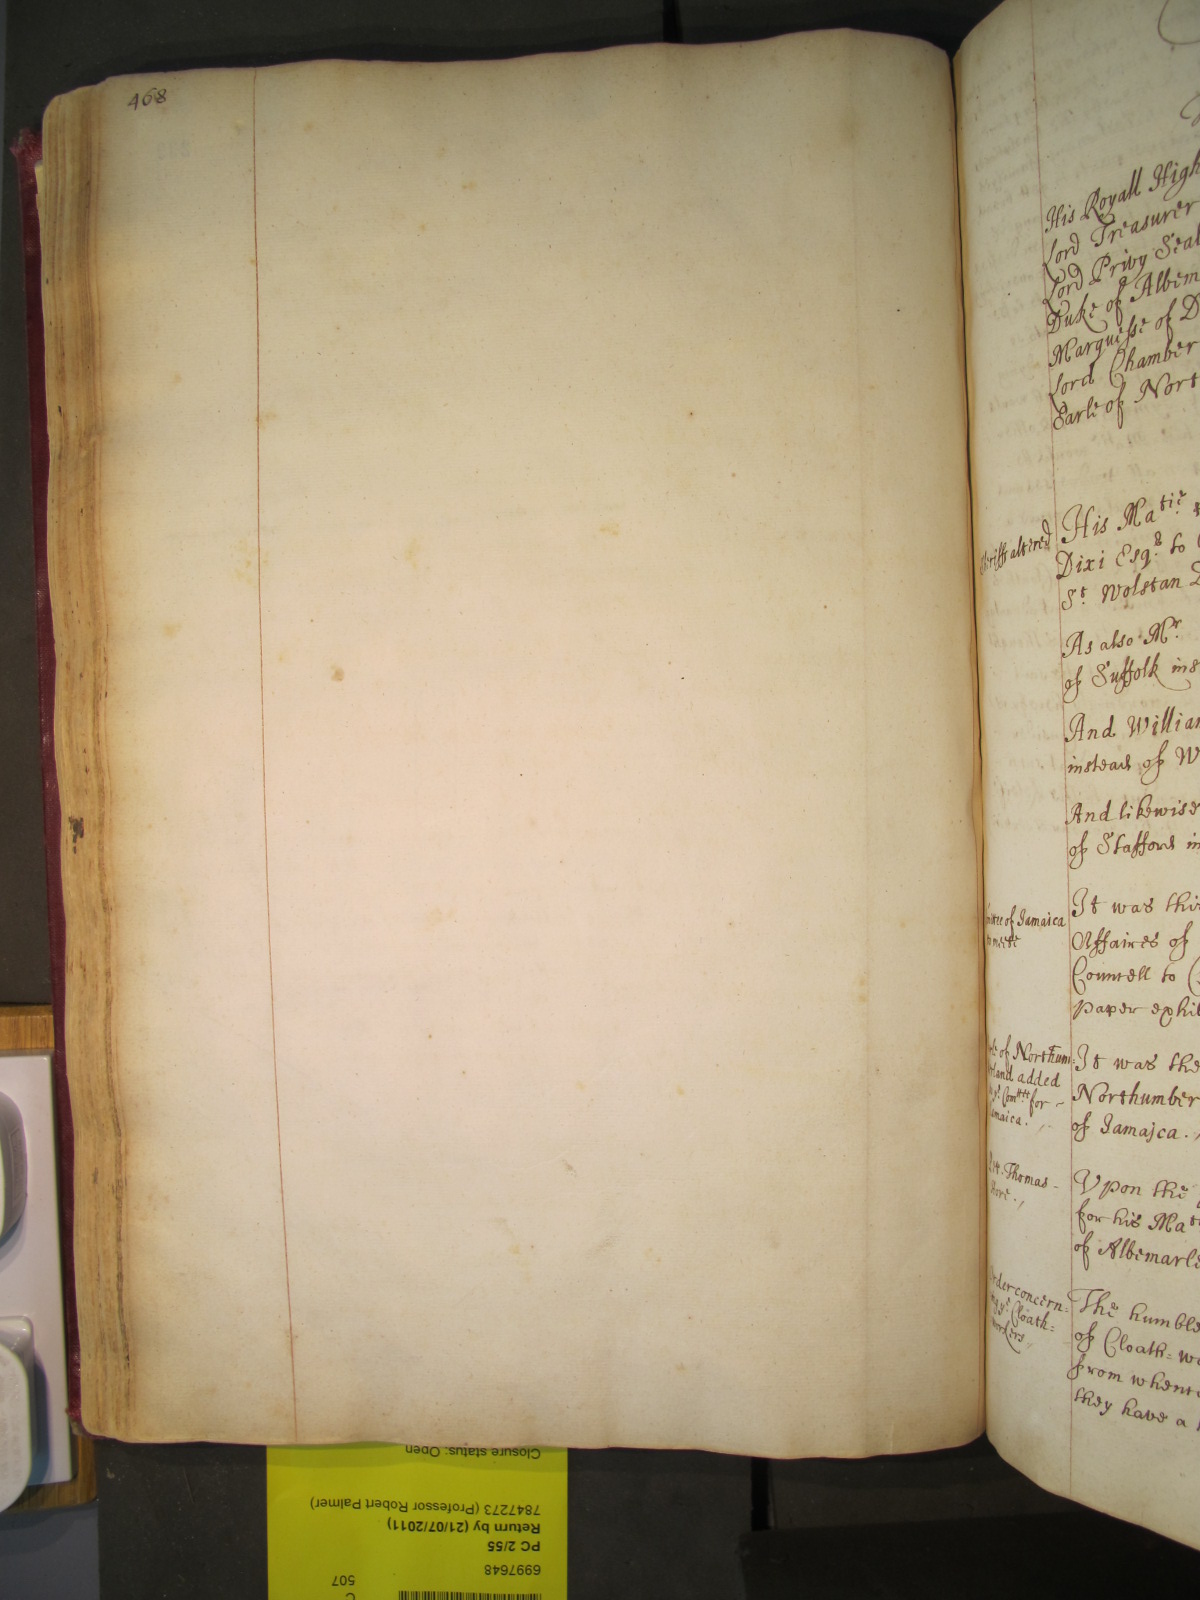 468
His Royall High
Lord Treasurer
Lord Privy Seal
Duke of Albem
Marquesse of D
Lord Chamber
Earle of Nort
altered
His Matie
Dixi Esqr. to
St. Wolstan
As also Mr.
of Suffolk ins
And William
instead of W
And likewise
of Stafford in
of Jamaica
It was this
Affaires of
Councell to
paper exhi
of Northum=
land added
ye Comttee for
It was the
Northumber
of Jamajca.
Thomas
Upon the
for his Mat
of Albemarle
order concern=
ye Cloath=
workers
The humble
of Cloath=wo
from whenc
they have a
Closure status: Open
7847273 (Professor Robert Palmer)
Return by (21/07/2011)
PC 2/55
6997648
507
C